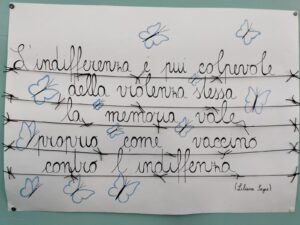 L'indifferenza è più colpevole
della violenza stessa
la memoria vale
proprio come vaccino
contro l'indiffenza
(Liliana Segre)